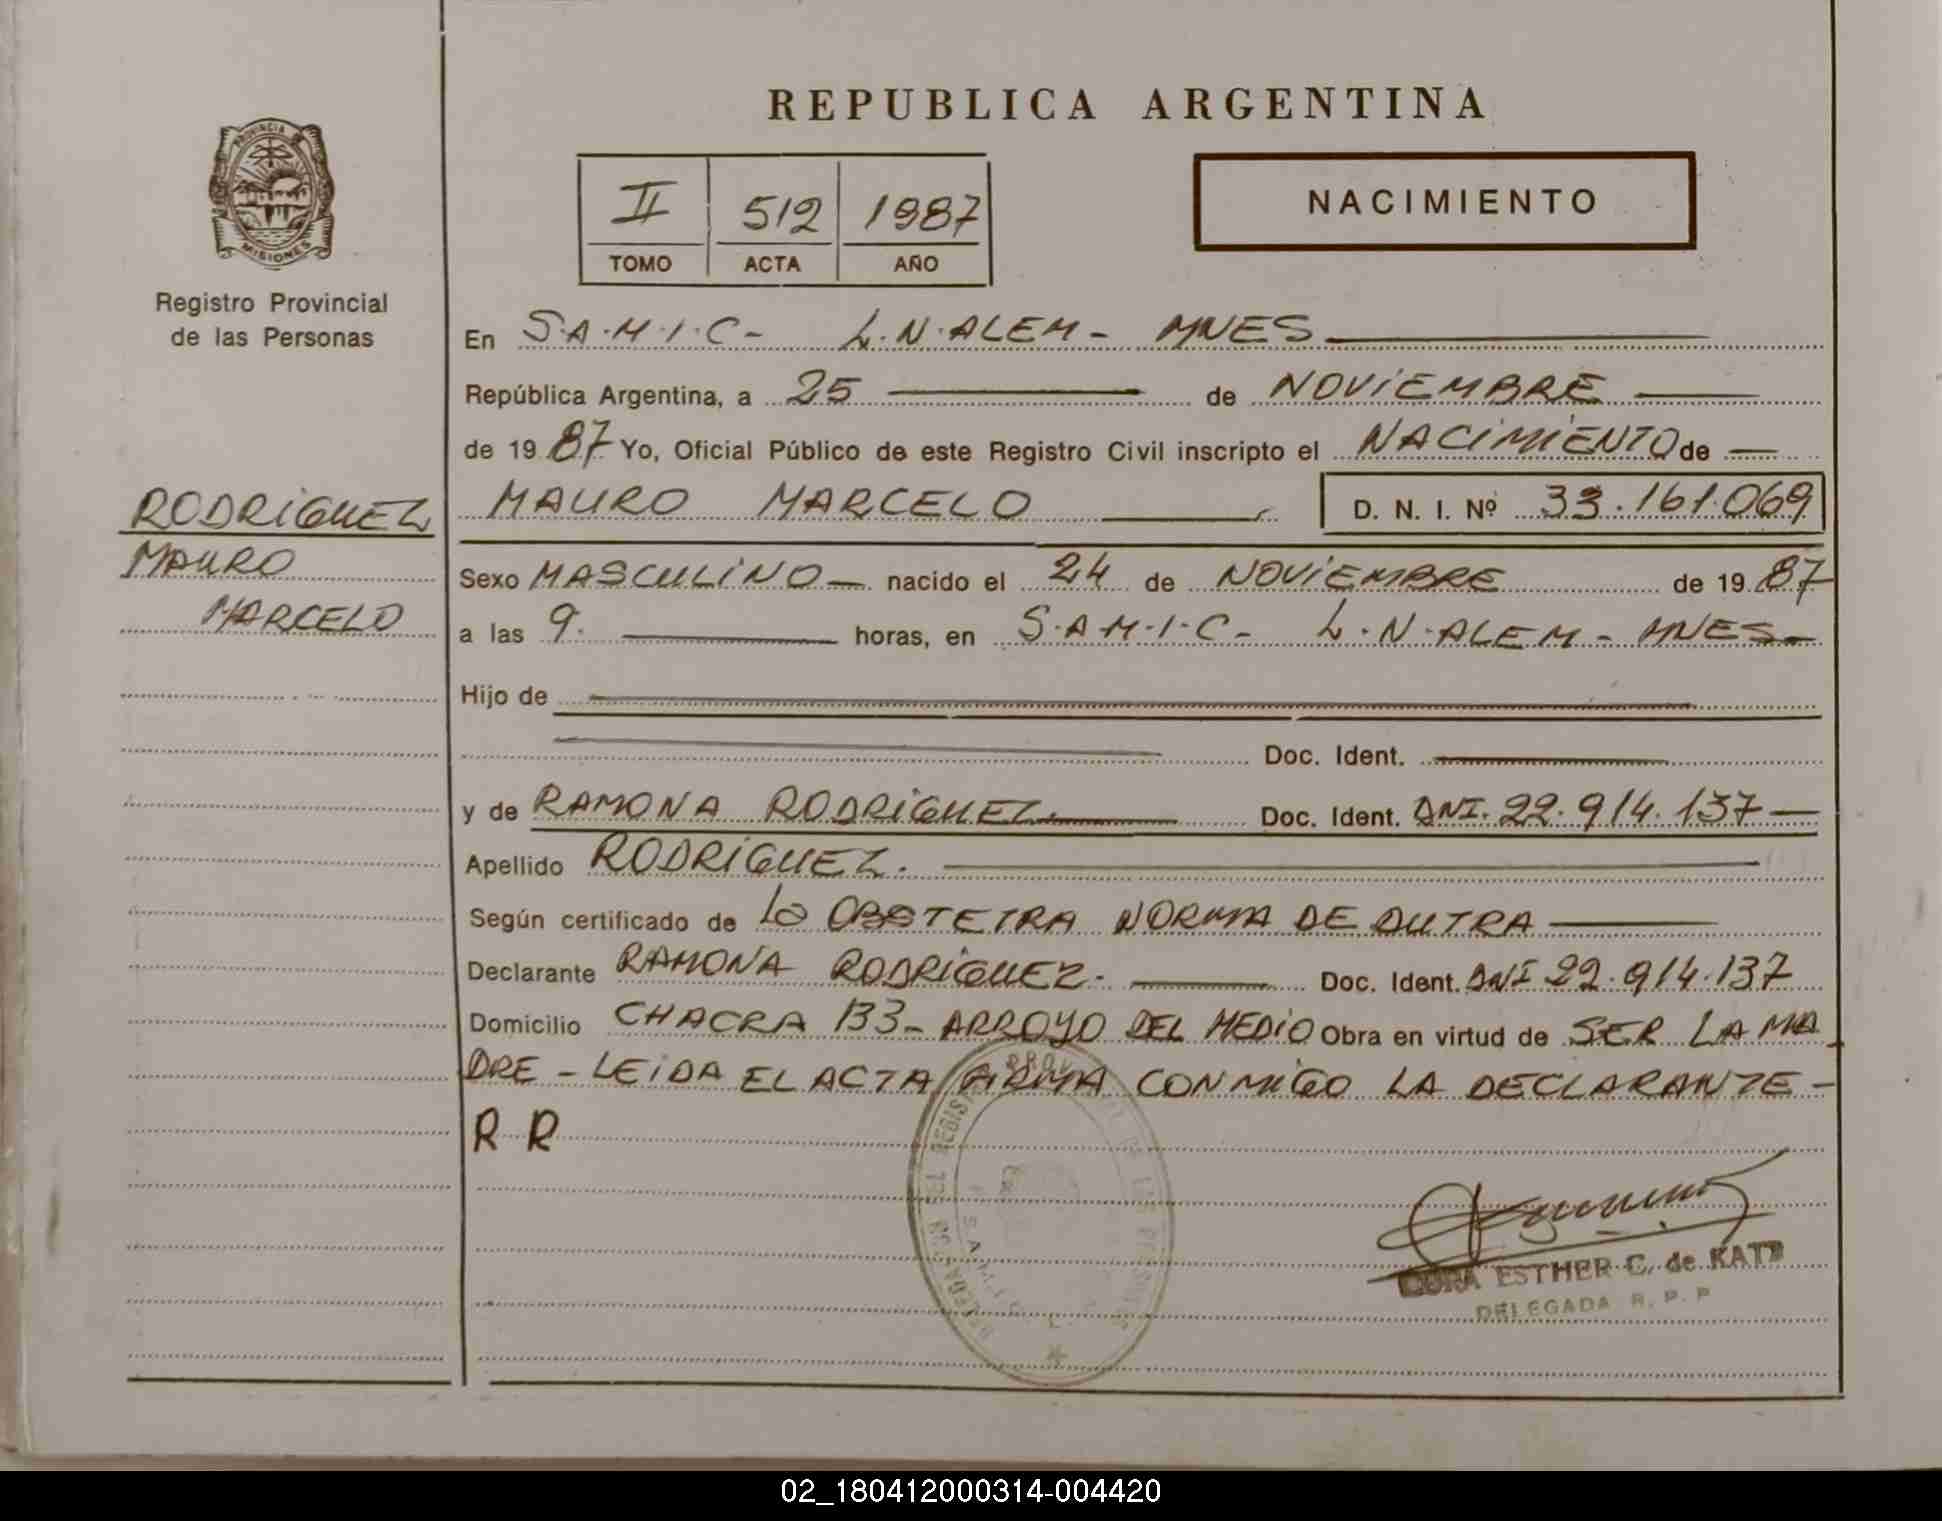 REPUBLICA ARGENTINA
PROVINCIA DE
MISIONES
Registro Provincial
de las Personas
II 512 1987
TOMO ACTA AÑO
NACIMIENTO
En S.A.M.I.C- L.N.ALEM- MNES
República Argentina, a 25 de NOVIEMBRE
de 1987 Yo, Oficial Público de este Registro Civil inscripto el NACIMIENTO de
RODRIGUEZ
MAURO
MARCELO
MAURO MARCELO D. N. I. Nº 33.161.069
Sexo MASCULINO- nacido el 24 de NOVIEMBRE de 1987
a las 9. horas, en S.A.M.I.C- L.N.ALEM- MNES-
Hijo de
Doc. Ident.
y de RAMONA RODRIGUEZ Doc. Ident. DNI.22.914.137-
Apellido RODRIGUEZ.
Según certificado de LA OBSTETRA NORMA DE DUTRA
Declarante RAMONA RODRIGUEZ- Doc. Ident. DNI 22.914.137
Domicilio CHACRA 133- ARROYO DEL MEDIO Obra en virtud de SER LA MA
DRE - LEIDA EL ACTA FIRMA CONMIGO LA DECLARANTE-
R R
ESTHER C. de
DELEGADA R. P. P
02_180412000314-004420